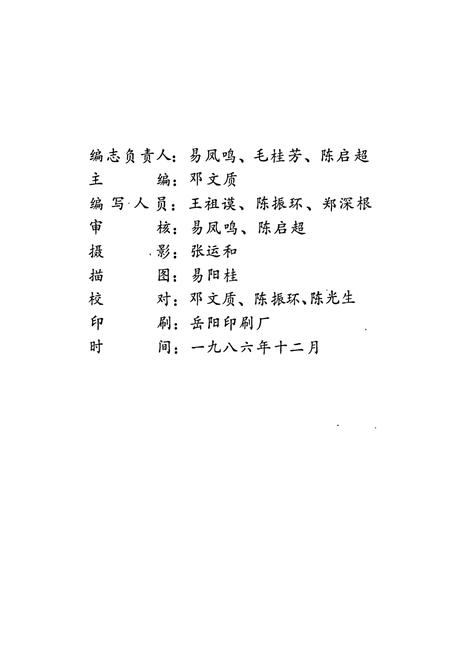 编志负责人：易凤鸣、毛桂芳、陈启超
主编：邓文质
编写人员：王祖谟、陈振环、郑深根
审核：易凤鸣、陈启超
摄影：张运和
描图：易阳桂
校对：邓文质、陈振环、陈光生
印刷：岳阳印刷厂
时间：一九八六年十二月